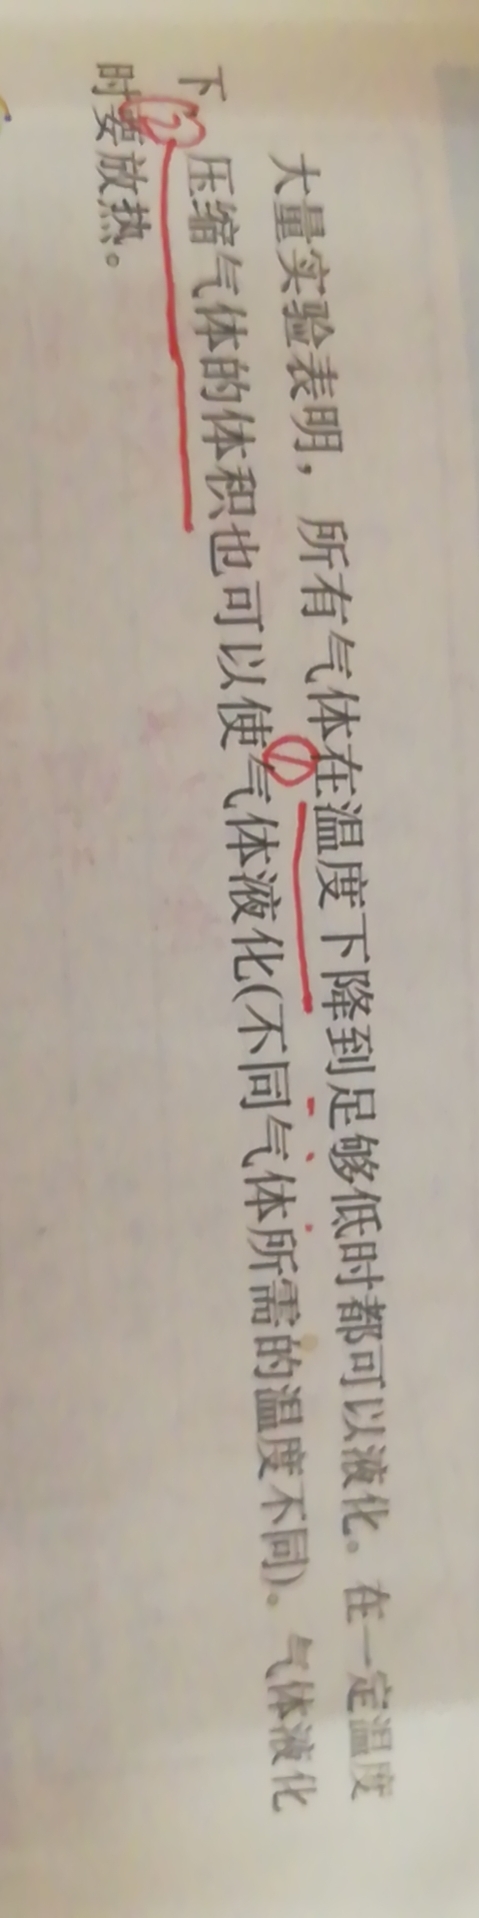 大量实验表明，所有气体在温度下降到足够低时都可以液化。在一定温度
下②压缩气体的体积也可以使气体液化(不同气体所需的温度不同)。气体液化
时要放热。
①